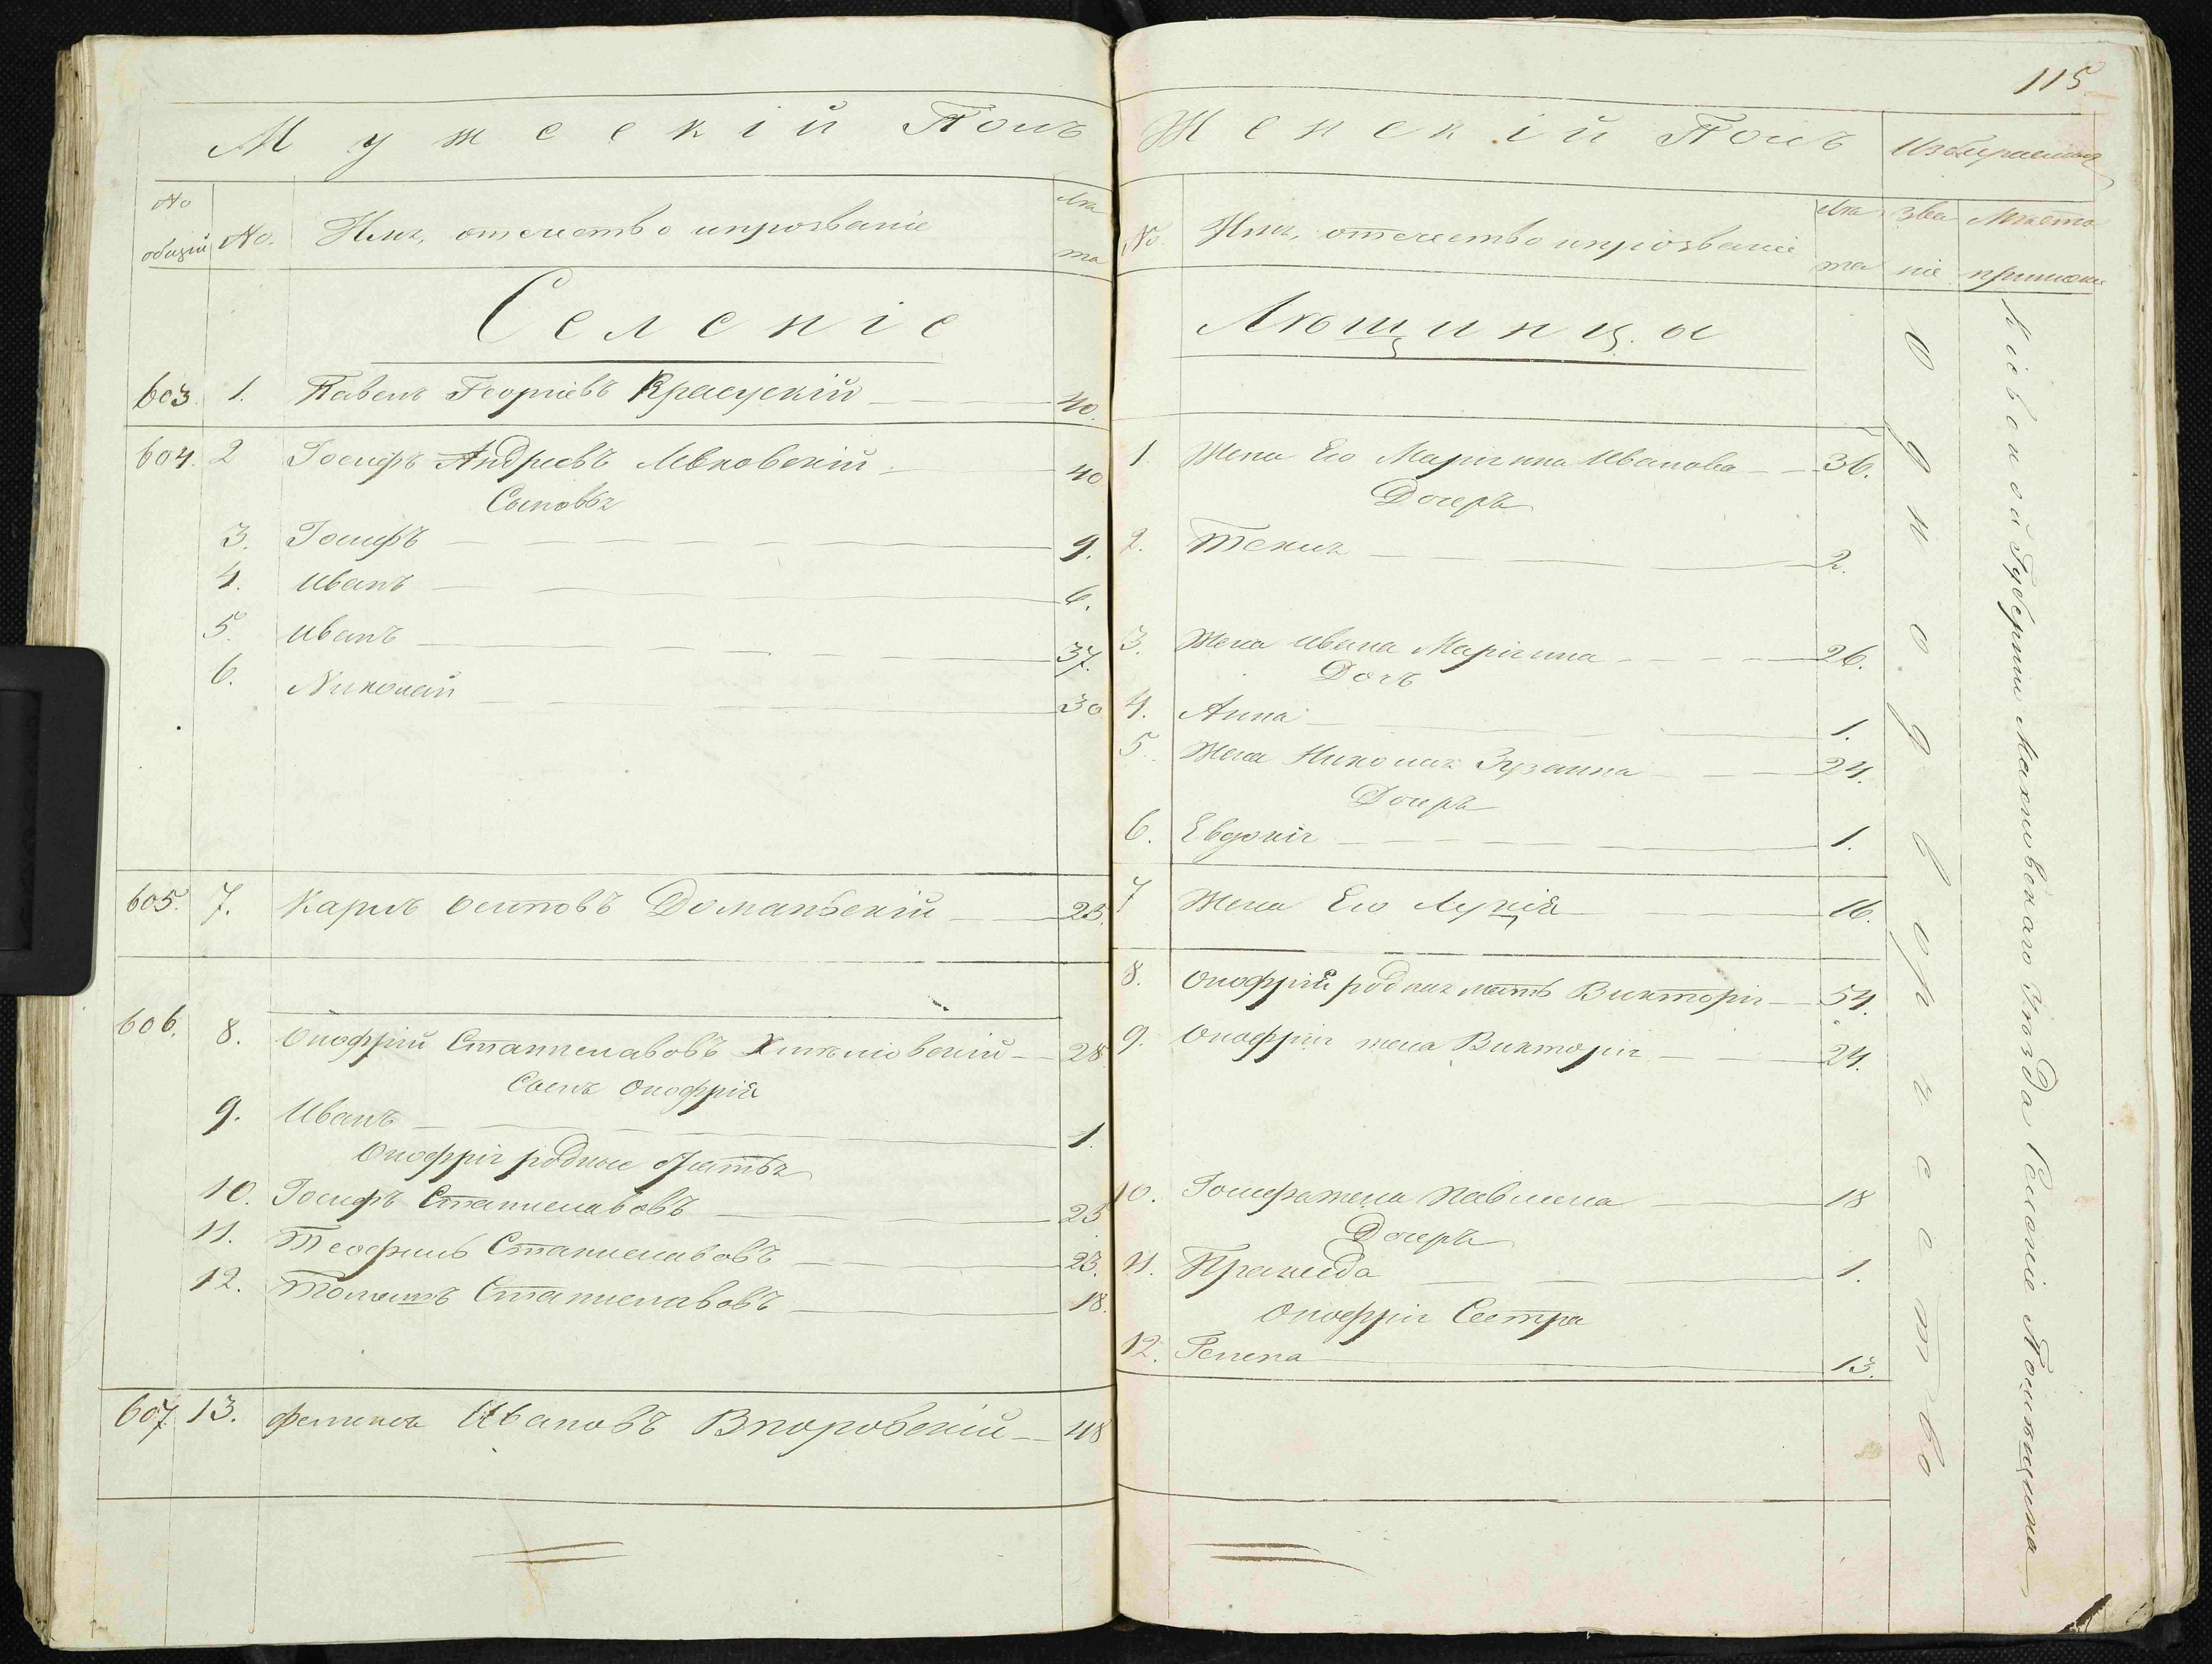 115
Мужескій Полъ
№ общій
№.
Имя, отечество и прозваніе
Лѣта
Селеніе
603. 1. Павелъ Георгіевъ Красускій 40.
604. 2 Іосифъ Андреевъ 40
Сыновья
3. Іосифъ 9.
4. Иванъ 6.
5. Иванъ 37.
6. Николай 30
605. 7. Карлъ Осиповъ Доманьскій 23.
606. 8. Онофрій Станиславовъ 28
Сынъ Онофрія
9. Иванъ 1.
Онофрія родные братья
10. Іосифъ Станиславовъ 25
11. Теофиль Станиславовъ 23.
12. Томашъ Станиславовъ 18.
607. 13. Феликсъ Ивановъ 48
Женскій Полъ
Избираемыя
№
Имя, отечество и прозваніе
Лѣта
званіе
Мѣсто
1. Жена Его Маріянна Иванова 36.
Дочерь
2. Текля 2.
3. Жена Ивана Маріянна 26.
Дочь
4. Анна 1.
5. Жена Николая Зузанна 24.
Дочерь
6. Евдокія 1.
7 Жена Его Луція 16.
8. Онофрія родная мать Викторія 54.
9. Онофрія жена Викторія 24.
10. Іосифа жена Павлина 18
Дочерь
11. Пракседа 1.
Онофрія Сестра
12. Гелена 13.
Однодворчество
Кіевской Губерніи Махновскаго Уѣзда Селеніе